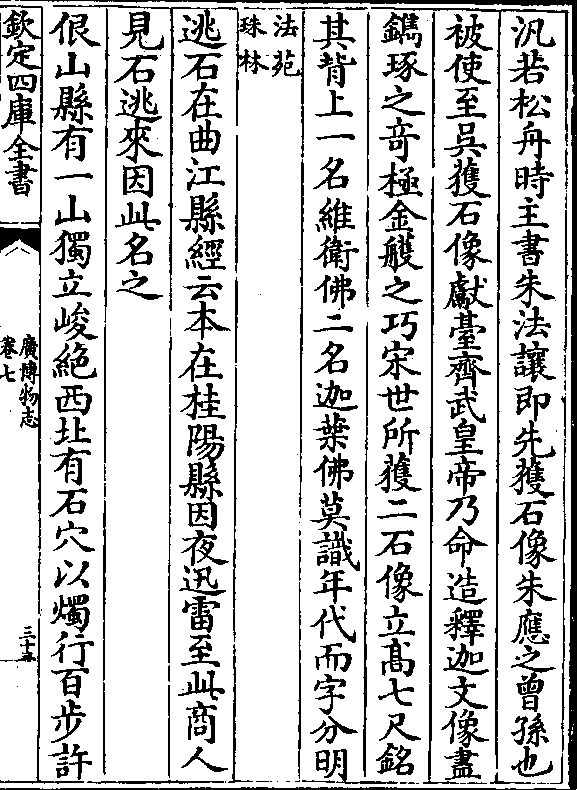 汎若松舟時主書朱法讓即先獲石像朱應之曾孫也
被使至吳獲石像獻臺齊武皇帝乃命造釋迦文像盡
鐫琢之竒極金艧之巧宋世所獲二石像立高七尺銘
其背上一名維衛佛二名迦葉佛莫識年代而字分明
法苑
珠林
逃石在曲江縣經云本在桂陽縣因夜迅雷至此商人
見石逃來因此名之
佷山縣有一山獨立峻絶西北有石穴以燭行百步許
欽定四庫全書
廣博物志
卷七